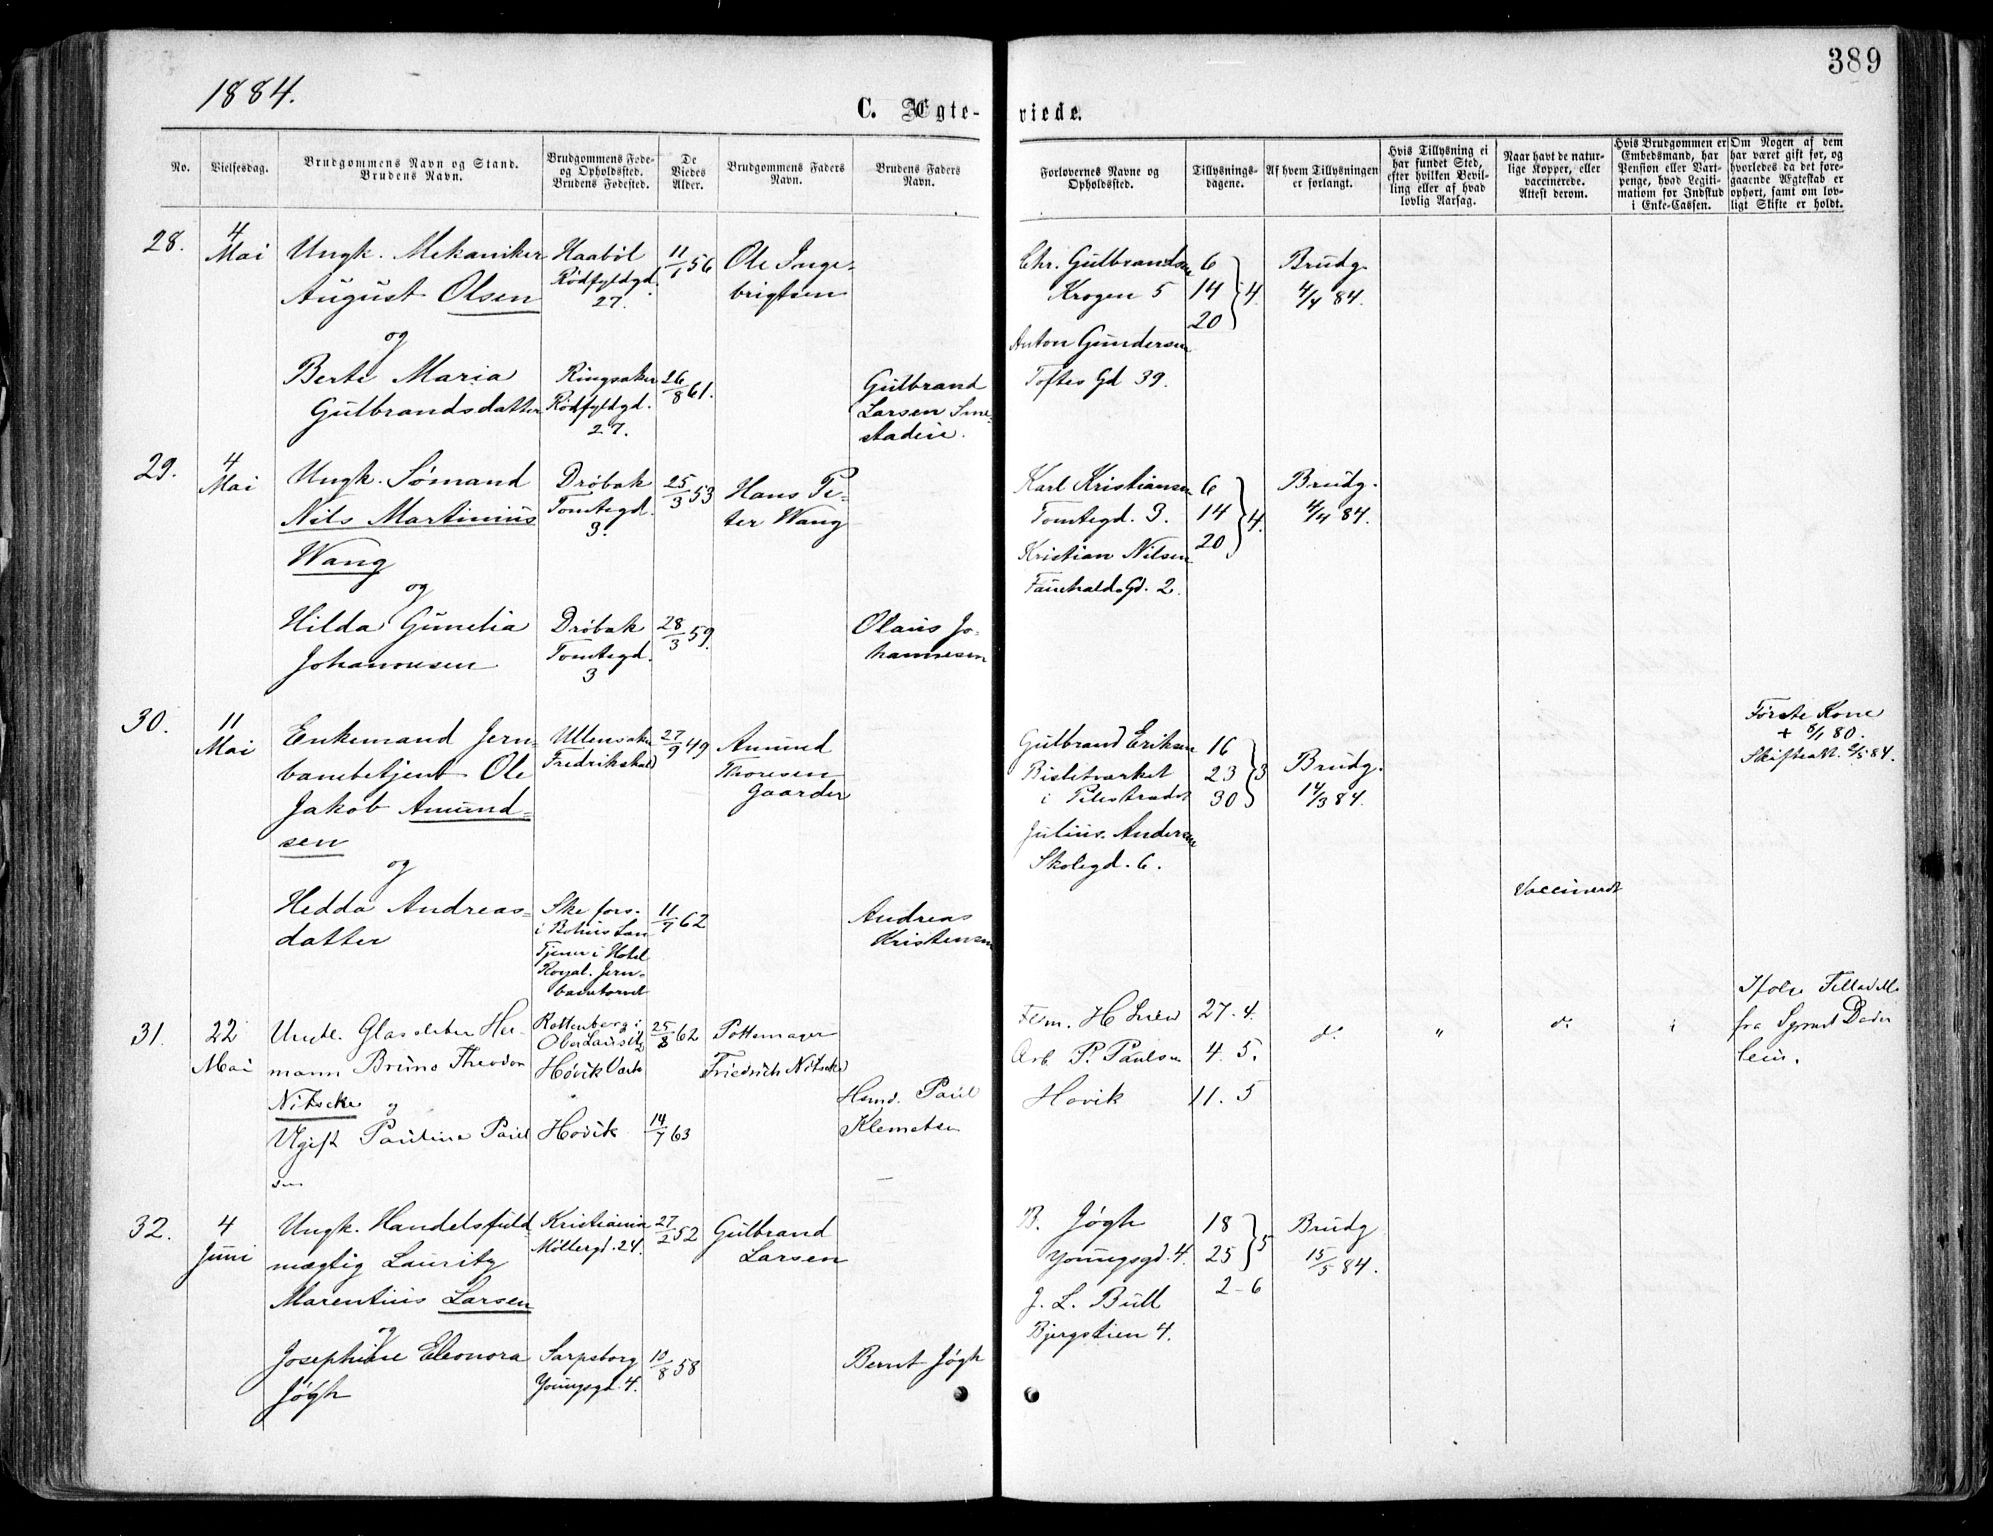 389
1884.
C. Ægte- viede.
No.
Vielsesdag.
Brudgommens Navn og Stand.
Brudens Navn.
Brudgommens Føde-
og Opholdssted.
Brudens Fødested.
De
Viedes
Alder.
Brudgommens Faders
Navn.
Brudens Faders
Navn.
Forlovernes Navne og
Opholdssted.
Tillysnings-
dagene.
Af hvem Tillysningen
er forlangt.
Hvis Tillysning ei
har fundet Sted,
efter hvilken Bevil-
ling eller af hvad
lovlig Aarsag.
Naar havt de natur-
lige Kopper, eller
vaccinerede.
Attest derom.
Hvis Brudgommen er
Embedsmand, har
Pension eller Vart-
penge, hvad Legiti-
mation for Indskud
i Enke-Cassen.
Om Nogen af dem
har været gift før, og
hvorledes da det fore-
gaaende Ægteskab er
ophørt, samt om lov-
ligt Skifte er holdt.
28.
4
Mai
Ungk. Mekaniker
August Olsen
og
Berte Maria
Gulbrandsdatter
Haaböl
Rödfyldgd.
27.
Ringsaker
Rödfyldgd.
27.
11/1 56
26/8 61.
Ole Inge-
brigtsen
Gulbrand
Larsen Sme-
staden.
Chr. Gulbrandsen
Krogen 5
Anton Gundersen
Toftes Gd 39.
6
14 } 4.
20
Brudg.
4/4 84.
29.
4
Mai
Ungk. Sömand
Nils Martinius
Wang
og
Hilda Gunelia
Johannesen
Dröbak
Tomtegd.
3.
Dröbak
Tomtegd.
3
25/3 53
28/3 59.
Hans Pe-
ter Wang
Olaus Jo-
hannesen
Karl Kristiansen
Tomtegd. 3.
Kristian Nilsen
Fauchalds Gd. 2.
6
14 } 4.
20
Brudg.
4/4 84.
30.
11
Mai
Enkemand Jern-
banebetjent Ole
Jakob Amund-
sen
og
Hedda Andreas-
datter
Ullensaker
Fredrikshald
Ske fors.
i Bohus Lan
Tjener i Hotel
Royal. Jern-
banetorvet
27/9 49
11/9 62
Amund
Thoresen
Gaarder
Andreas
Kristensen
Gulbrand Eriksen
Bisletværket
i Pilestrædet
Julius Andersen
Skolegd. 6.
16
23 } 3
30
Brudg.
14/3 84.
Vaccineret
Første Kone
+ 8/1 80.
Skifteatt. 2/5 84.
31.
22
Mai
Ungk. Glassleber Her-
mann Bruno Theodor
Nitscke og
Ugift Pauline Paul
sen
Rottenberg i
Ober Lausitz
Høvik Værk
Hovik
25/8 62
14/9 63
Pottemager
Friedrich Nitscke
Hsmd. Paul
Klemetsen
Arb. P. Paulsen
Hovik
27. 4.
4. 5.
11. 5
do.
"
do.
Ifølge
fra
32.
4
Juni
Ungk. Handelsfuld
mægtig Lauritz
Marentius Larsen
og
Josephine Eleonora
Jøgh
Kristiania
Møllergd. 24.
Sarpsborg
Youngsgd. 4.
27/2 52
10/8 58
Gulbrand
Larsen
Bernt Jøgh
B. Jøgh
Youngsgd. 4.
J. L. Bull
Bjergstien 4.
18
25 } 5
2 - 6
Brudg
15/5 84.